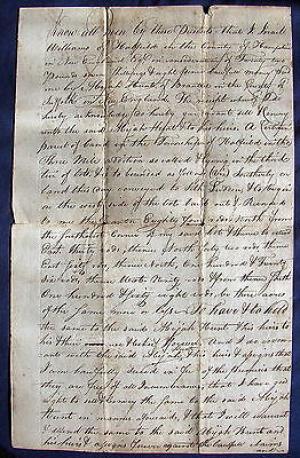 Know all men by these Presents that I Israel
Williams of Hatfield in the County of Hampshire
in New England Esq. in consideration of Twenty two
Pounds Shillings & eight pence Lawfull money paid
me by Elijah Hunt of in the County of
Suffolk in New England the receipt whereof I do
hereby acknowledge, do hereby give grant sell & convey
unto the said Elijah Hunt & to his heirs A Certain
parcel of Land in the Township of Hatfield in the
Three Mile addition so called & lying in the third
tier of lots & is bounded as follows Southerly on
land this day conveyed to Seth
on the west side of the lot laid out & Recorded
to me Eighty four rods North from
the Southeast Corner of my said lot thence to extend
East Ninety rods, thence North Sixty two rods thence
East forty rods, thence North, One hundred & Twenty
Six rods, thence West Ninety rods & from thence South
One hundred & forty eight rods be there acres
of the same more or less To have & to hold
the same to the said Elijah Hunt & his heirs to
his & their use & behoof forever And I do coven-
ant with the said Elijah & his heirs & assigns that
I am lawfully seized in fee of the premises that
they are free of all Incumbrances, that I have good
right to sell & convey the same to the said Elijah
Hunt in manner aforesaid, & that I will warrant
& defend the same to the said Elijah Hunt and
his heirs & assigns forever against the lawful Claims
and